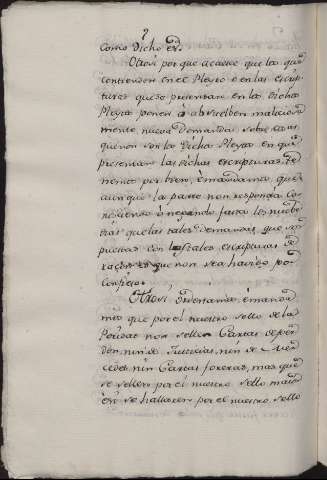 como dicho es.
Otrosi porque acaece que los que
contienden en el Pleyto e en las escrip-
turas que se presentan en los dichos
Pleytos ponen à absuelben maliciosa
mente nuevas demandas sobre cosas
que non son la dicha Pleyta en que
presentan las dichas escripturas te-
nemos por bien, è mandamos que
aunque la parte non responda co-
nosciendo ò negando fasta los nueve
dias que las tales demandas, que son
puestas con las tales escripturas de
razones que non sea havido por
confieso.
Otrosi ordenamos è manda
mos que por el nuestro sello de la
Poridat non sellen Cartas de per-
don nin de Justicias, nin de Mer-
cedes nin Cartas foreras, mas que
se sellen por el nuestro sello maior
è si se hallaren por el nuestro sello